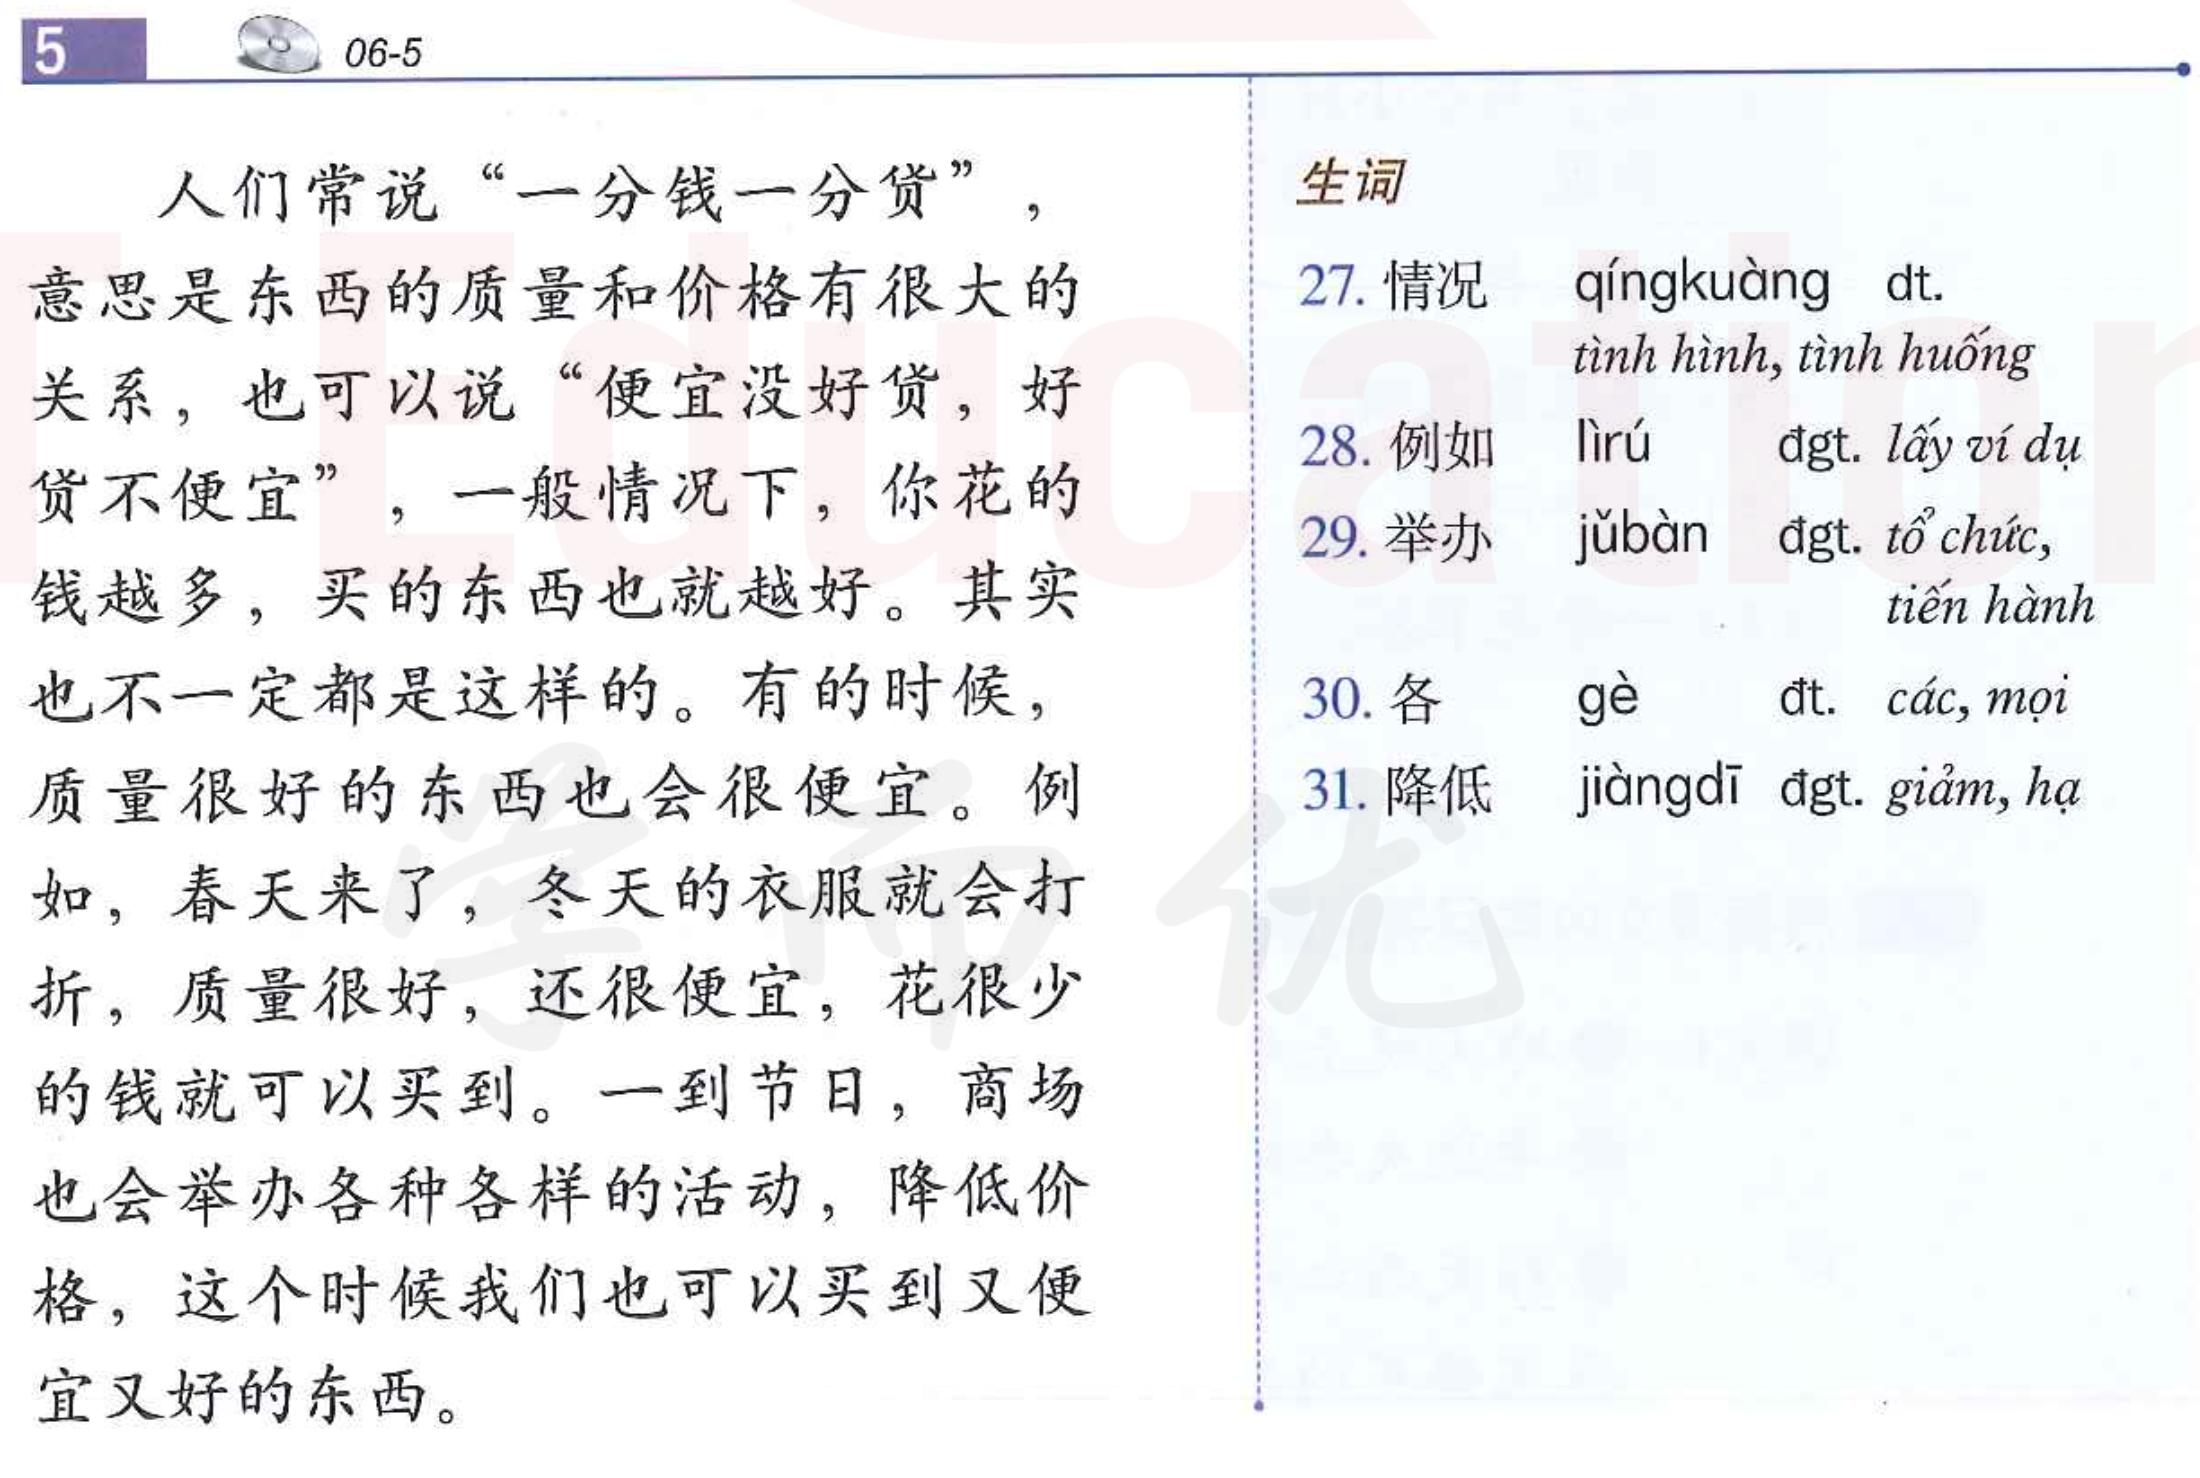 5
06-5
人们常说“一分钱一分货”，
意思是东西的质量和价格有很大的
关系，也可以说“便宜没好货，好
货不便宜”，一般情况下，你花的
钱越多，买的东西也就越好。其实
也不一定都是这样的。有的时候，
质量很好的东西也会很便宜。例
如，春天来了，冬天的衣服就会打
折，质量很好，还很便宜，花很少
的钱就可以买到。一到节日，商场
也会举办各种各样的活动，降低价
格，这个时候我们也可以买到又便
宜又好的东西。
生词
27. 情况 qíngkuàng dt.
tình hình, tình huống
28. 例如 lìrú đgt. lấy ví dụ
29. 举办 jǔbàn đgt. tổ chức,
tiến hành
30. 各 gè đt. các, mọi
31. 降低 jiàngdī đgt. giảm, hạ
Education
学而优